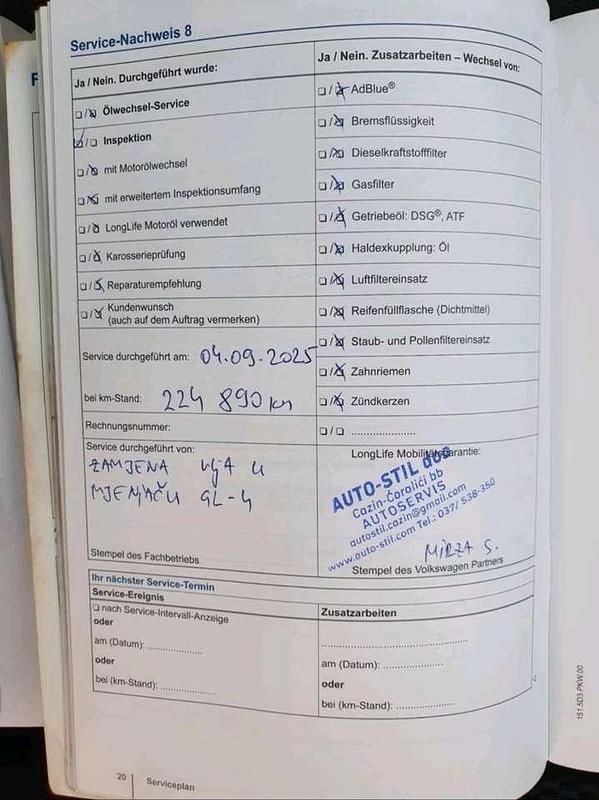 Service-Nachweis 8
Ja / Nein. Durchgeführt wurde:
Ölwechsel-Service
Inspektion
mit Motorölwechsel
mit erweitertem Inspektionsumfang
LongLife Motoröl verwendet
Karosserieprüfung
Reparaturempfehlung
Kundenwunsch
(auch auf dem Auftrag vermerken)
Service durchgeführt am: 04.09.2025
bei km-Stand: 224 890 km
Rechnungsnummer:
Service durchgeführt von:
ZAMJENA ulja u
MJENJAČU GL-4
Stempel des Fachbetriebs
Ja / Nein. Zusatzarbeiten – Wechsel von:
AdBlue®
Bremsflüssigkeit
Dieselkraftstofffilter
Gasfilter
Getriebeöl: DSG®, ATF
Haldexkupplung: Öl
Luftfiltereinsatz
Reifenfüllflasche (Dichtmittel)
Staub- und Pollenfiltereinsatz
Zahnriemen
Zündkerzen
....................
LongLife Mobilitätsgarantie:
AUTO-STIL doo
Cazin-Ćoralići bb
AUTOSERVIS
autostil.cazin@gmail.com
www.auto-stil.com Tel.: 037/ 538-350
MIRZA S.
Stempel des Volkswagen Partners
Ihr nächster Service-Termin
Service-Ereignis
nach Service-Intervall-Anzeige
oder
am (Datum): ................
oder
bei (km-Stand): ................
Zusatzarbeiten
........................................
am (Datum): ..................
oder
bei (km-Stand): ..................
20 Serviceplan
151.5D3.PKW.00